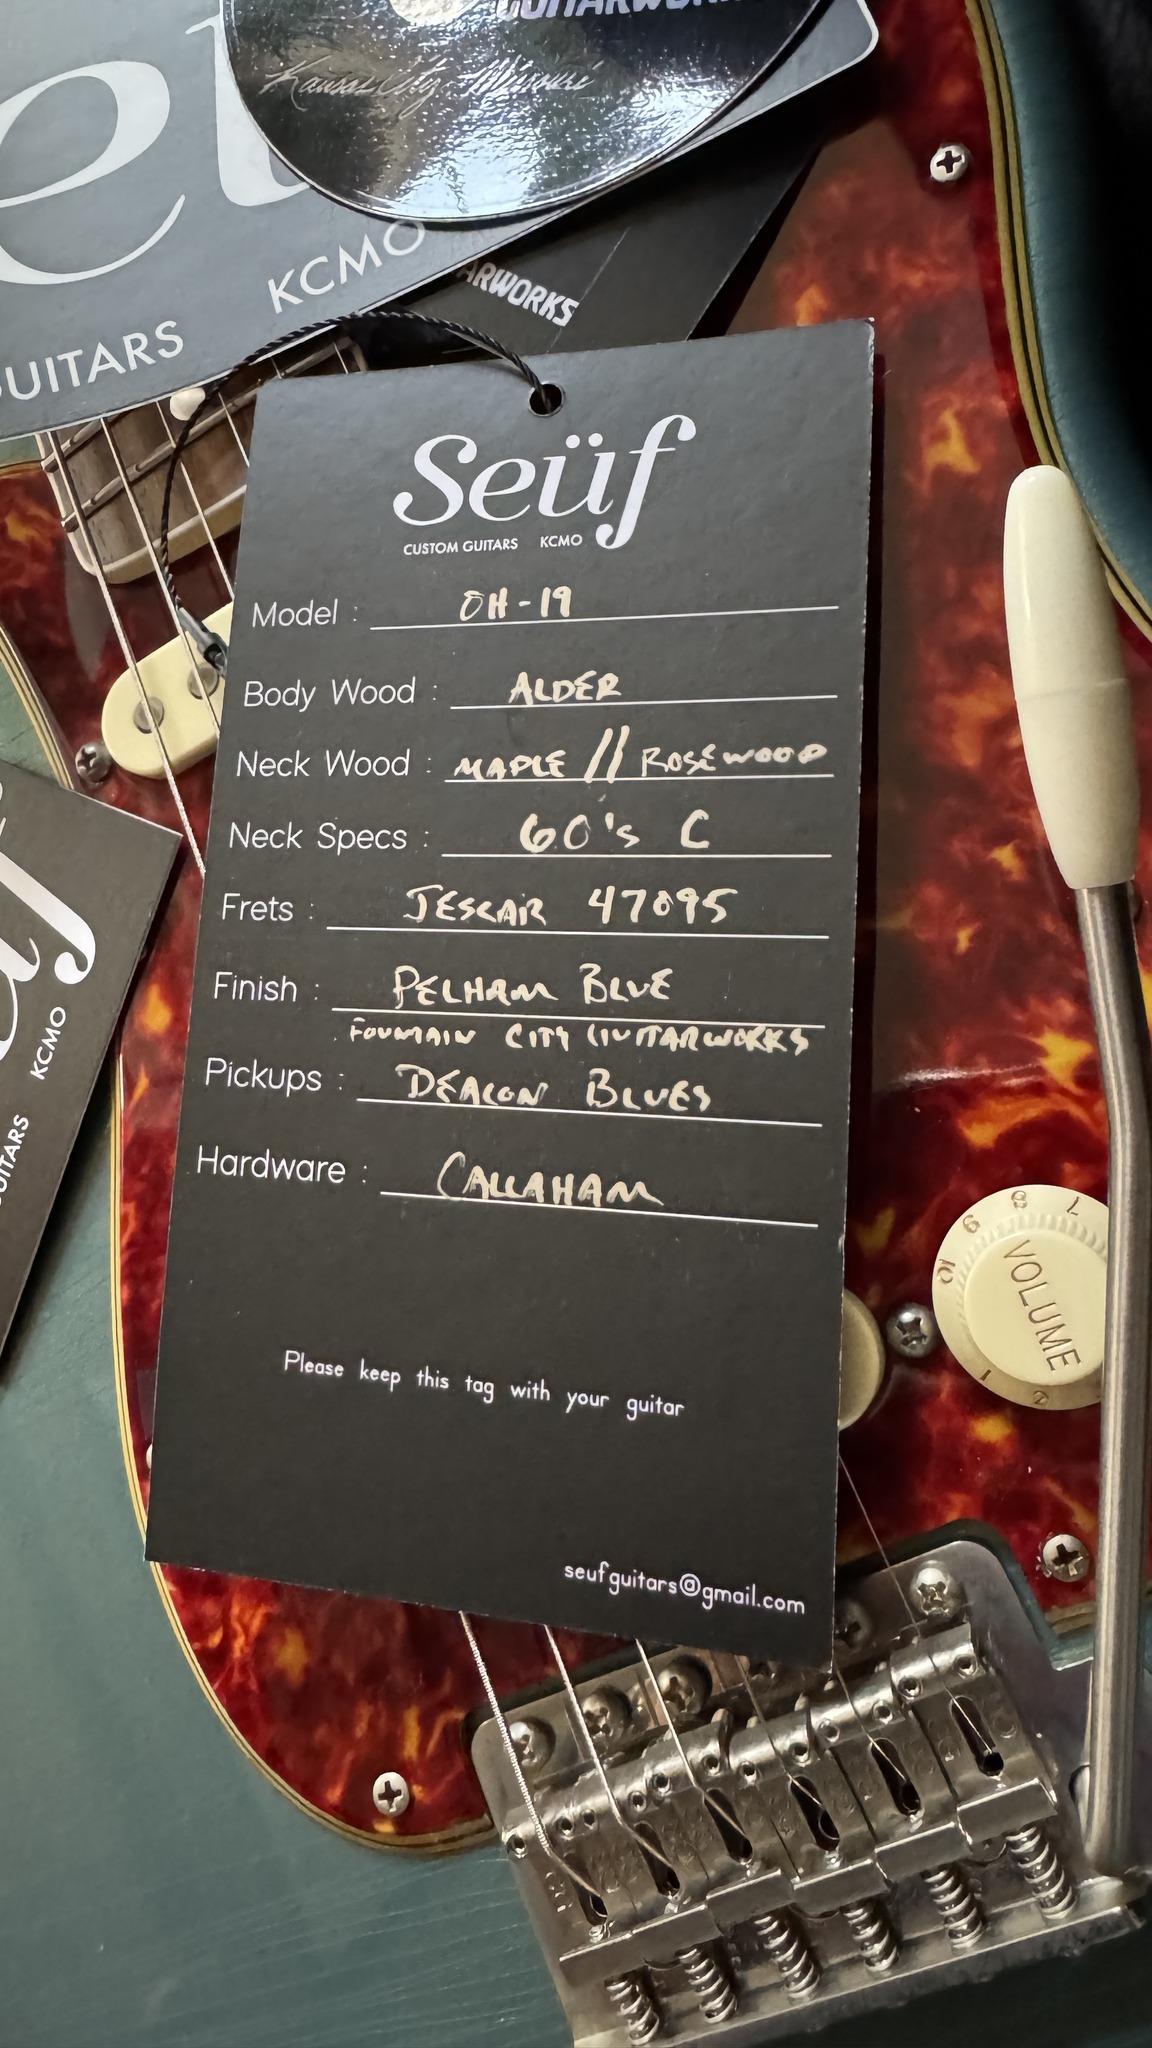 GUITARWORKS
Kansas City, Missouri
eü
KCMO
GUITARS
ARWORKS
Seüf
CUSTOM GUITARS KCMO
Model : OH-19
Body Wood : ALDER
Neck Wood : MAPLE // ROSEWOOD
Neck Specs : 60's C
Frets : JESCAR 47095
Finish : PELHAM BLUE
FOUNTAIN CITY GUITARWORKS
Pickups : DEACON BLUES
Hardware : CALLAHAM
Please keep this tag with your guitar
seufguitars@gmail.com
üf
KCMO
UITARS
10 9 8 7
VOLUME
1 2